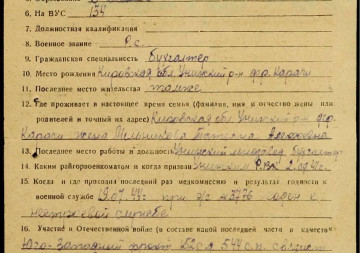 6. На ВУС 134
7. Должностная квалификация
8. Военное звание р-с
9. Гражданская специальность Бухгалтер
10. Место рождения Кировская обл. Унинский р-н дер. Карачи
11. Последнее место жительства также
12. Где проживает в настоящее время семья (фамилия, имя, отчество жены или
родителей и точный их адрес) Кировская обл. Унинский р-н дер.
Карачи жена
13. Последнее место работы и должность Бухгалтер
14. Каким райгорвоенкоматом и когда призван Унинским РВК
15. Когда и где проходил последний раз медкомиссию и результат годности к
военной службе 19.07.44г при э/г годен к
нестроевой службе
16. Участие в Отечественной войне (в составе какой последней части и в качестве
Юго-Западный фронт 544 с.п. связист